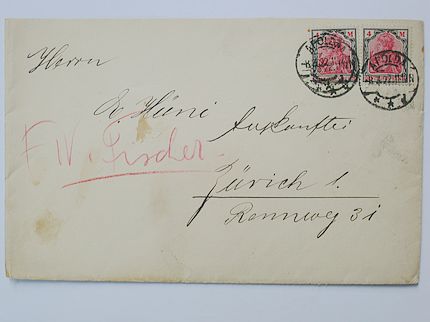 4 M 4 M
APOLDA APOLDA
Herrn
E. Hüni
Auskunftei
F W. Fischer.
Zürich 1.
Rennweg 31